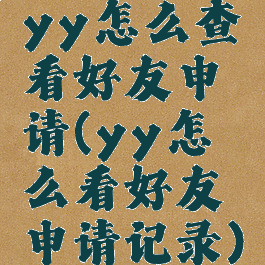 yy怎么查
看好友申
请(yy怎
么看好友
申请记录)